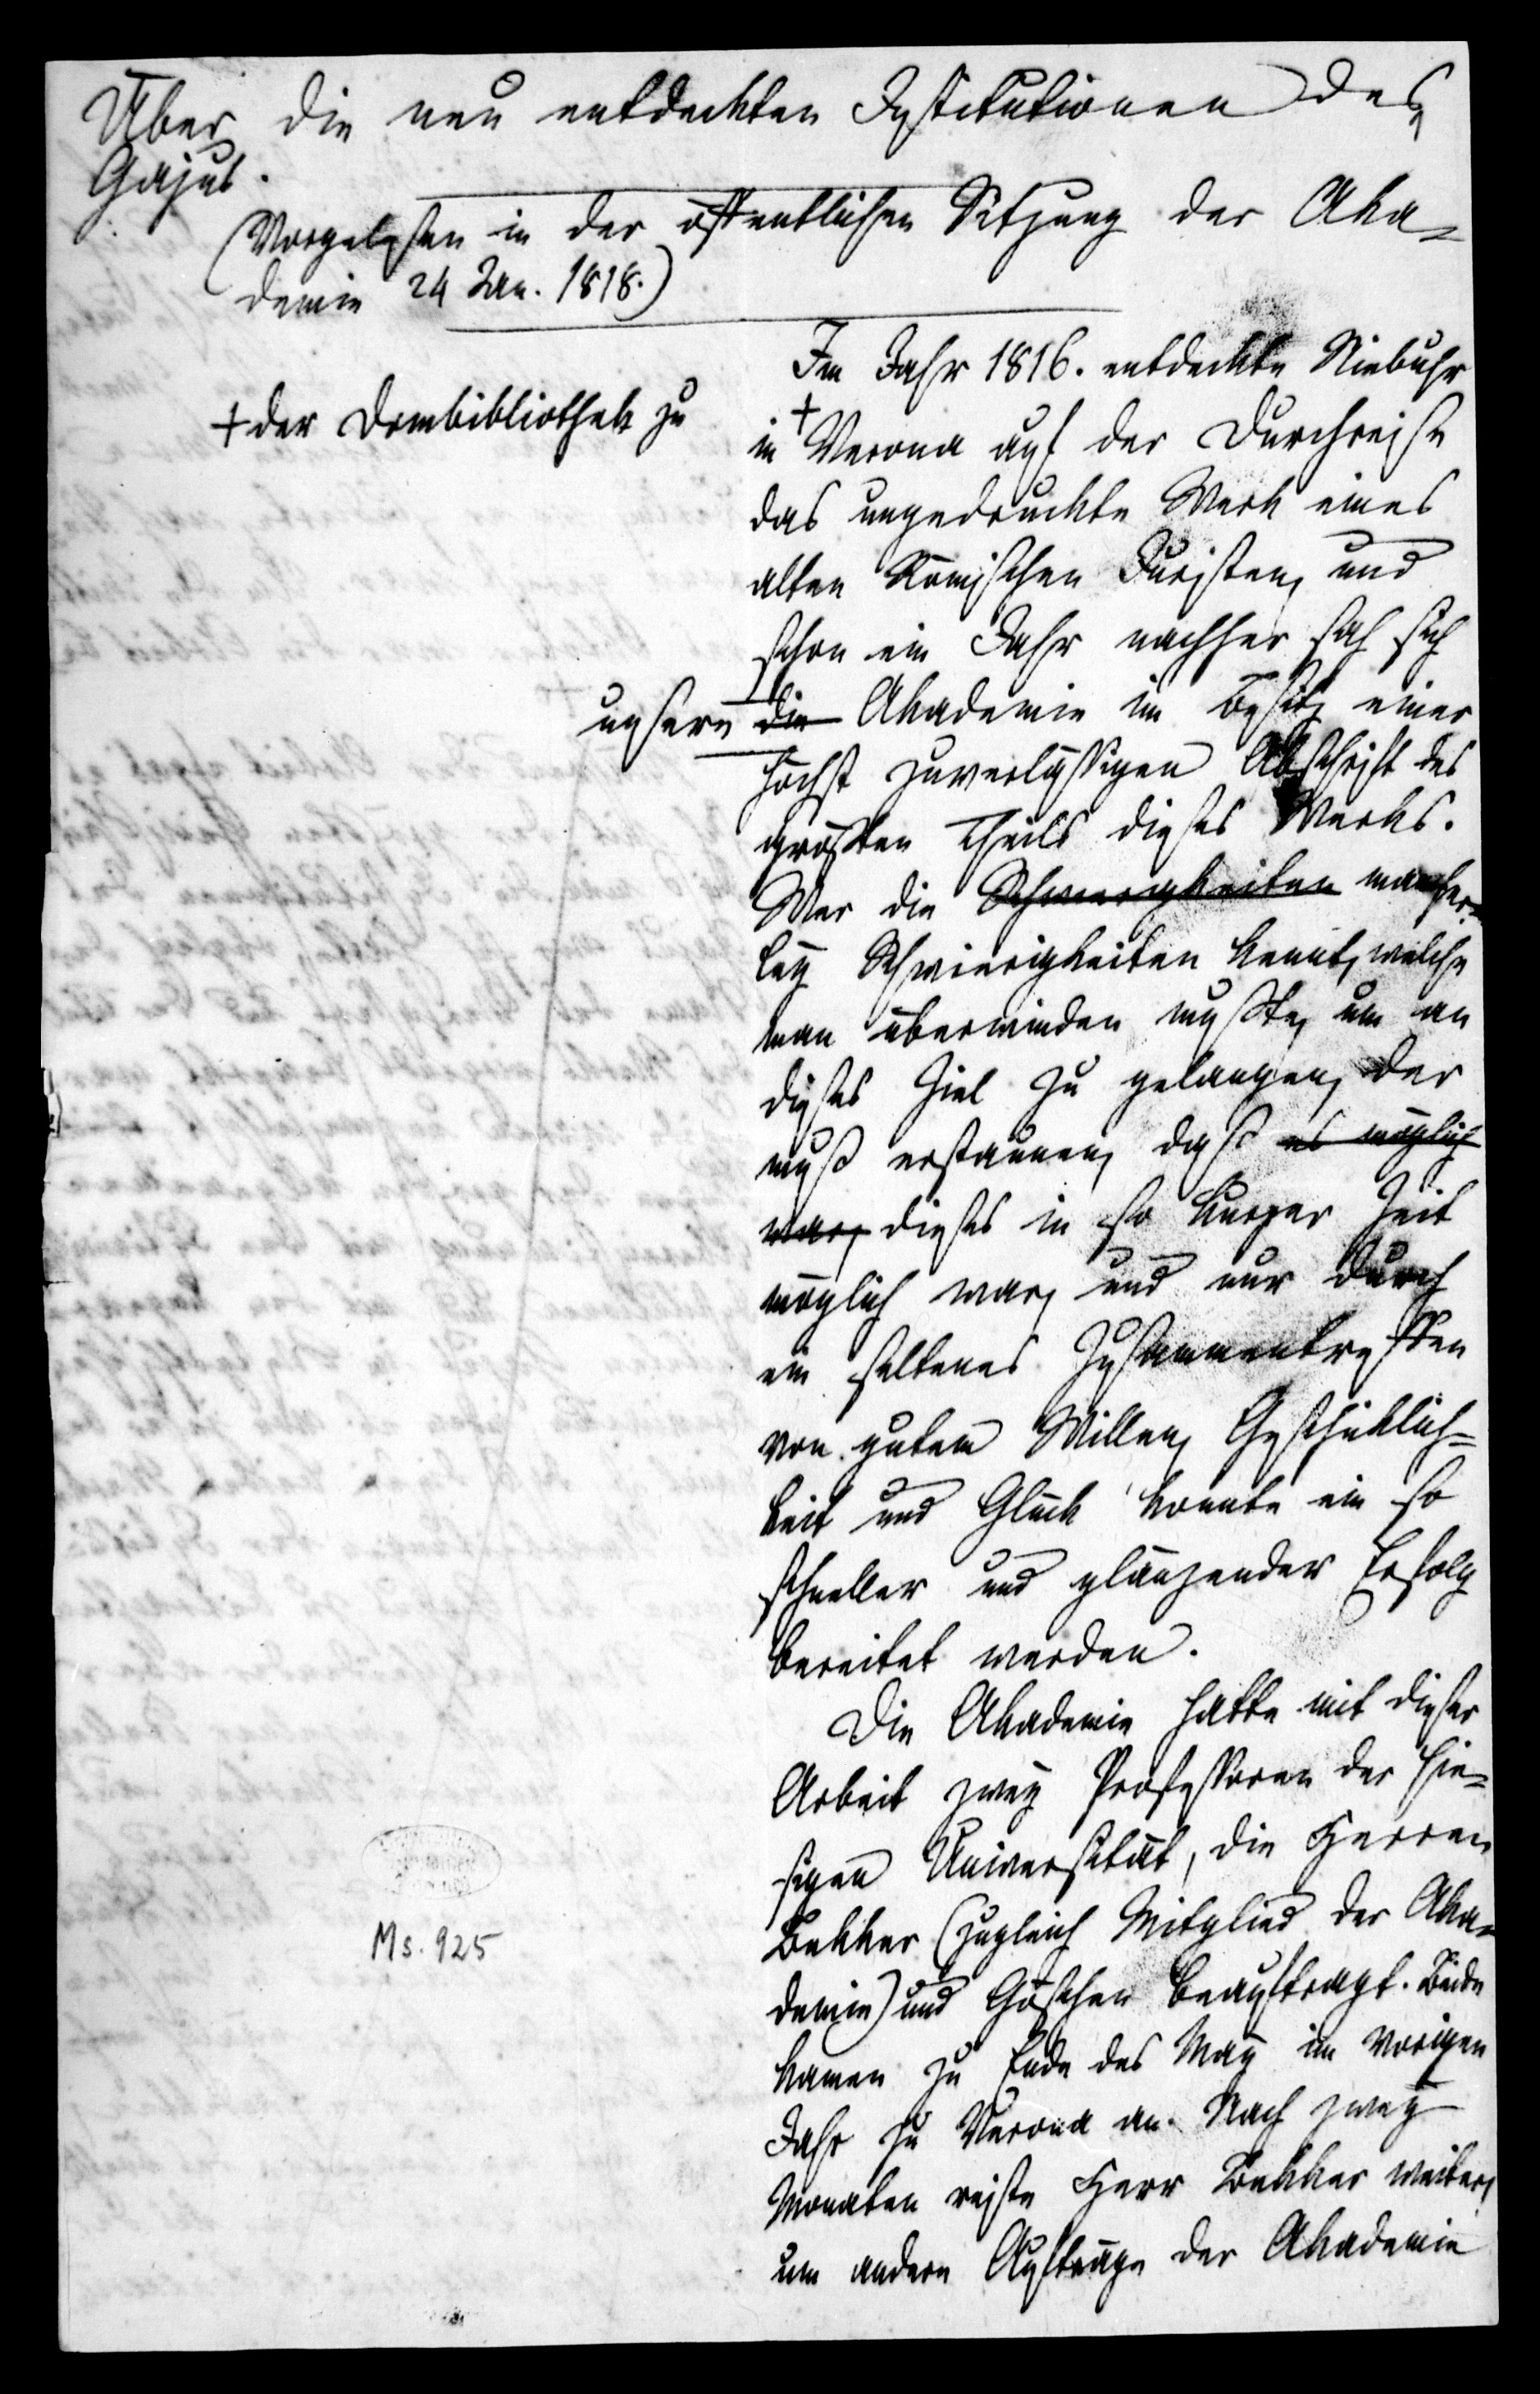 Über die neu entdeckten Institutionen des
Gajus.
(Vorgelesen in der öffentlichen Sitzung der Aka-
demie 24 Jan. 1818.)
Im Jahr 1816. entdeckte Niebuhr
+ der Dombibliothek zu
in + Verona auf der Durchreise
das ungedruckte Werk eines
alten Römischen Juristen, und
schon ein Jahr nachher sah sich
unsere die Akademie im Besitz einer
höchst zuverlässigen Abschrift des
größten Theils dieses Werks.
Wer die Schwierigkeiten mancher-
ley Schwierigkeiten kennt, welche
man überwinden mußte, um an
dieses Ziel zu gelangen, der
muß erstaunen, daß es möglich
war, dieses in so kurzer Zeit
möglich war, und nur durch
ein seltenes Zusammentreffen
von gutem Willen, Geschicklich-
keit und Glück konnte ein so
schneller und glänzender Erfolg
bereitet werden.
Die Akademie hatte mit dieser
Arbeit zwey Professoren der hie-
sigen Universität, die Herren
Bekker (zugleich Mitglied der Aka-
demie) und Göschen beauftragt. Beide
kamen zu Ende des May im vorigen
Jahr zu Verona an. Nach zwey
Monaten reiste Herr Bekker weiter,
um andere Aufträge der Akademie
Ms. 925